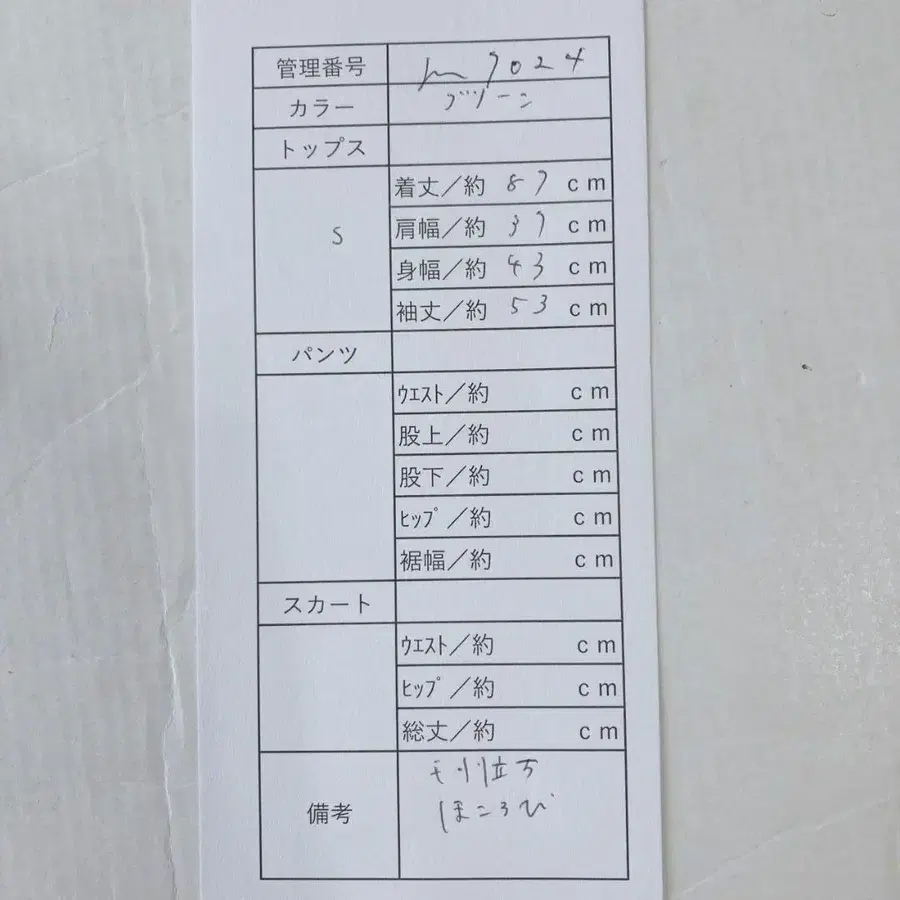 管理番号 m9024
カラー グリーン
トップス
S
着丈／約 87 cm
肩幅／約 37 cm
身幅／約 43 cm
袖丈／約 53 cm
パンツ
ウエスト／約 cm
股上／約 cm
股下／約 cm
ヒップ／約 cm
裾幅／約 cm
スカート
ウエスト／約 cm
ヒップ／約 cm
総丈／約 cm
備考
毛羽立ち
ほころび